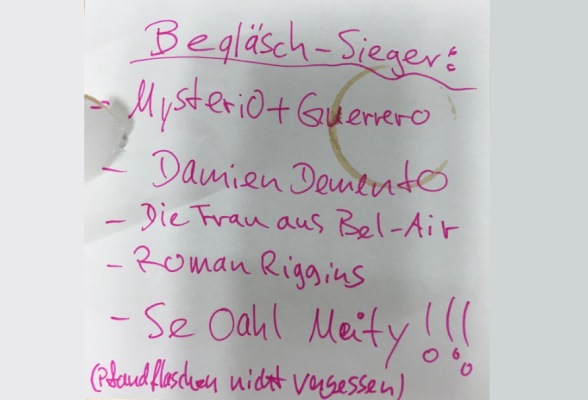 Begläsch-Sieger:
- Mysterio + Guerrero
- Damien Demento
- Die Frau aus Bel-Air
- Roman Riggins
- Se Oahl Meity!!!
(Pfandflaschen nicht vergessen)